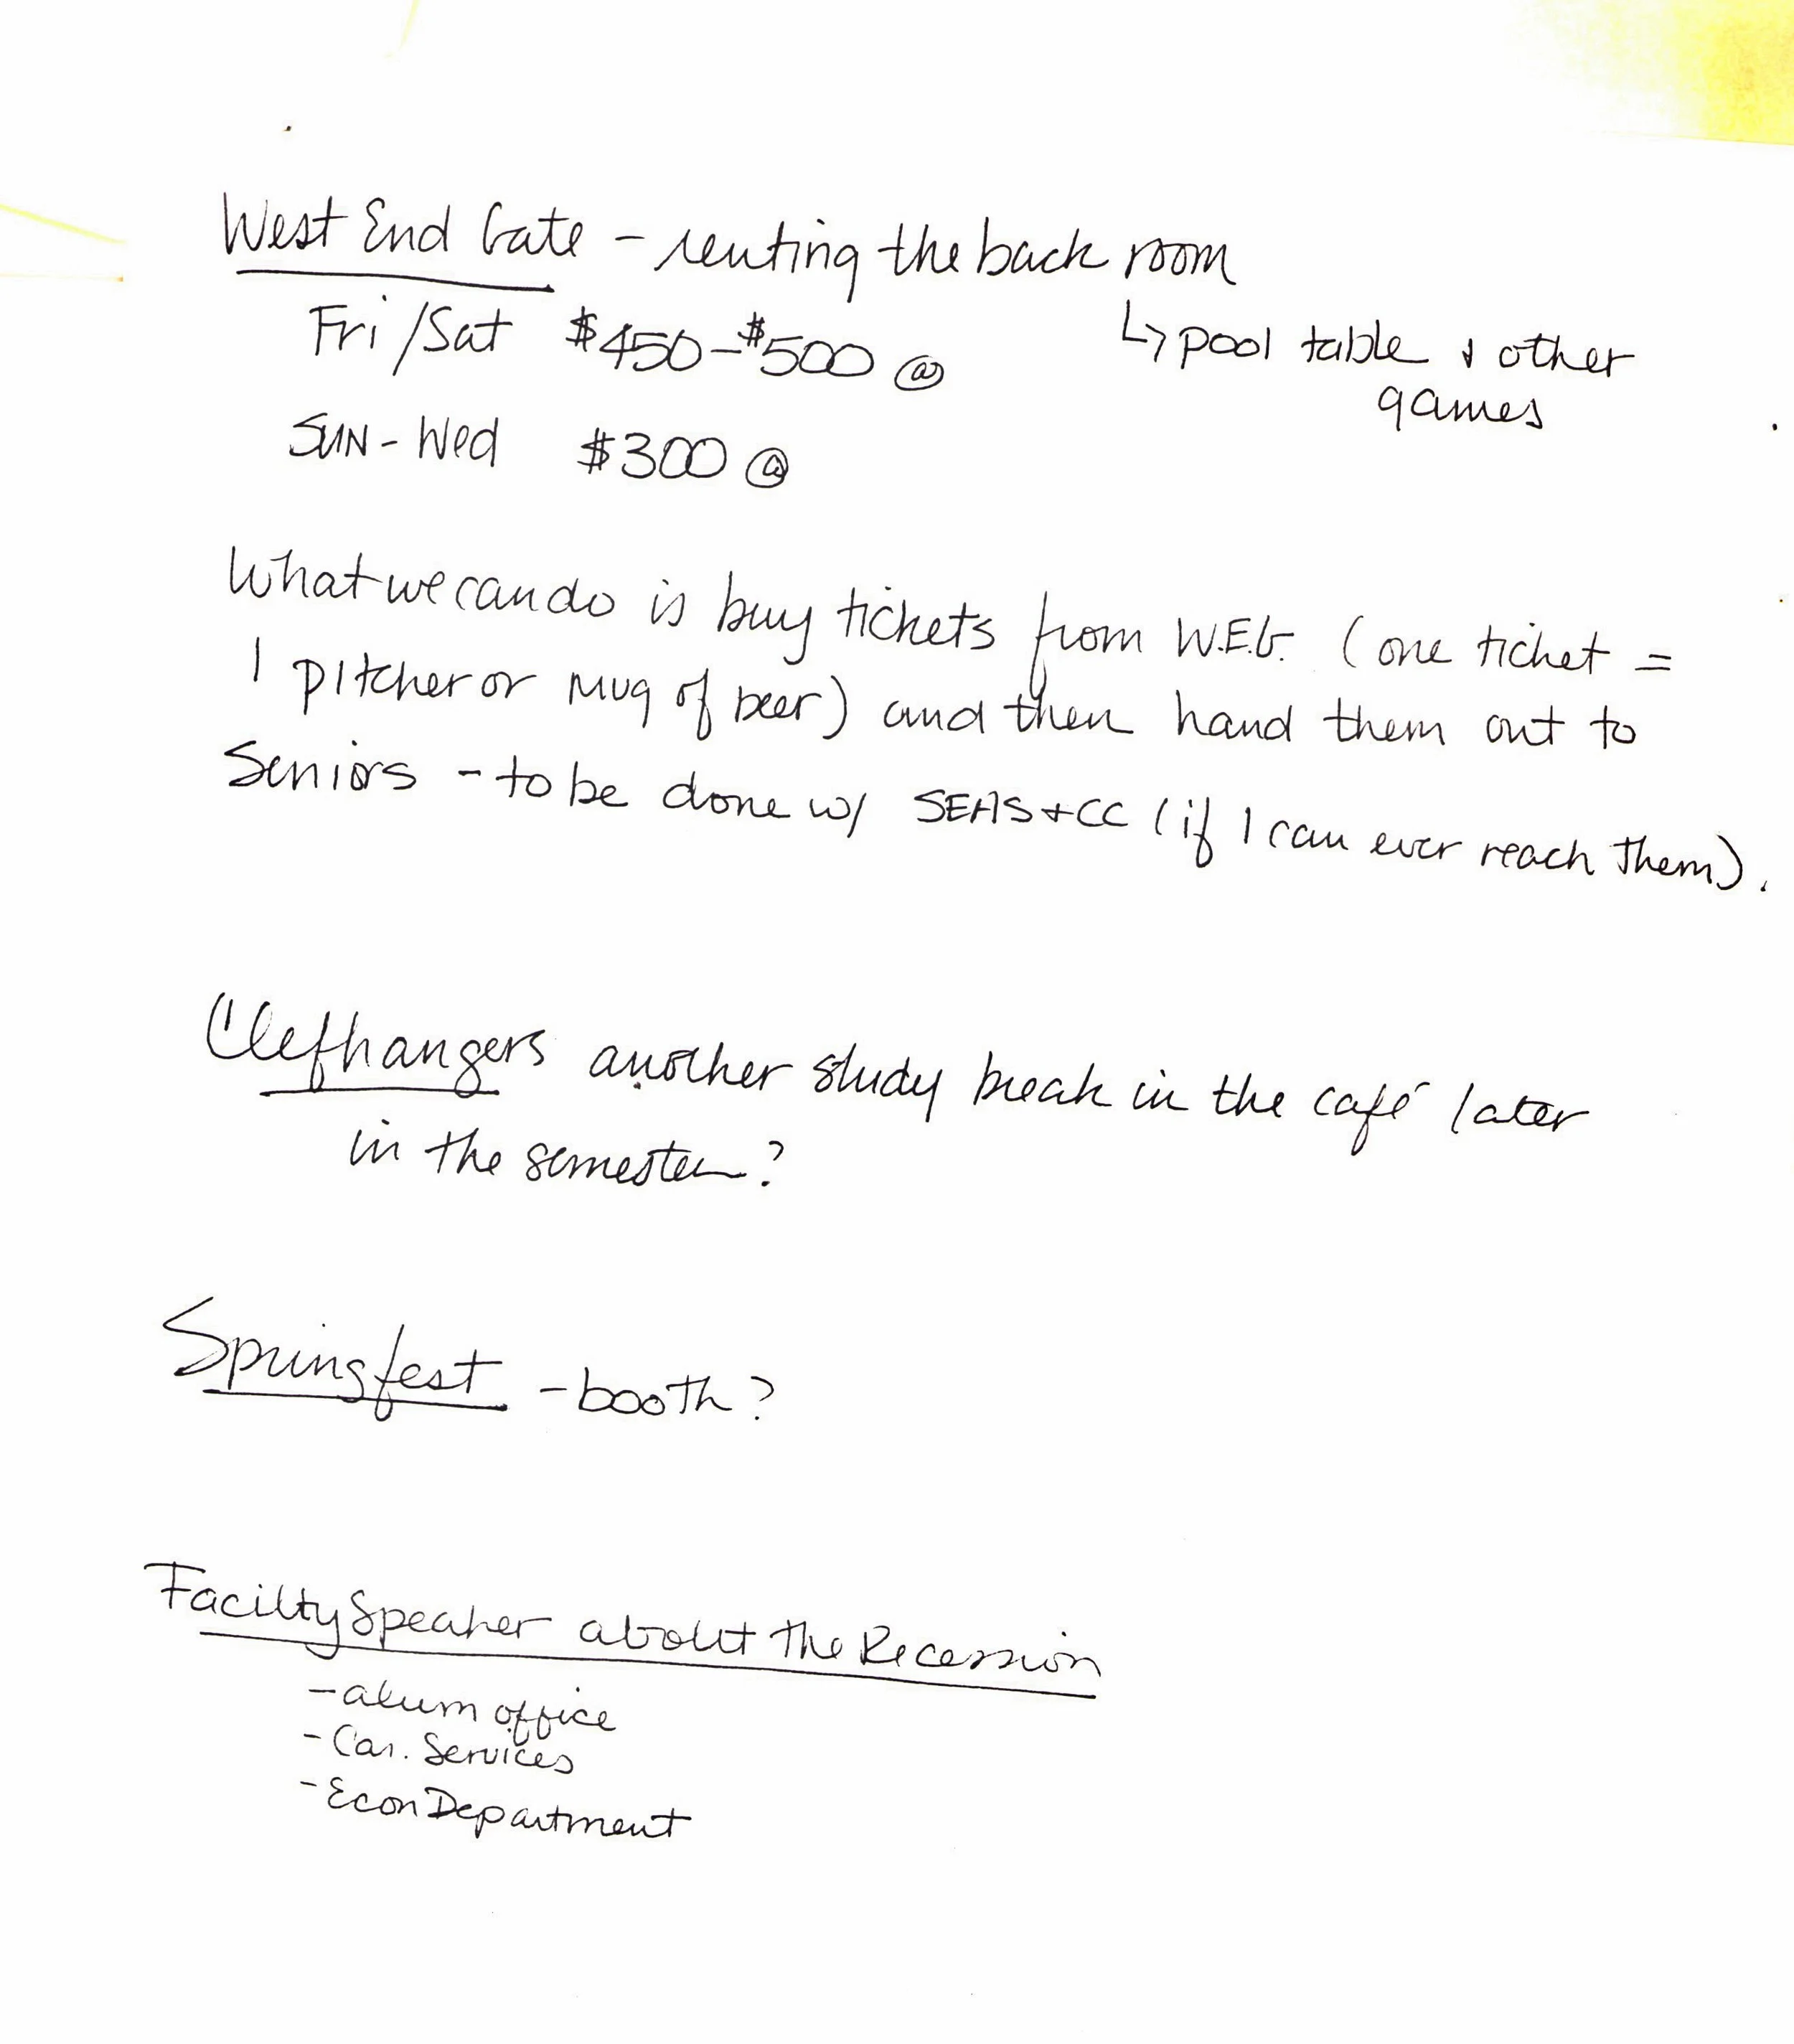 West End Gate - renting the back room
Fri/Sat $450-$500 @
↳ pool table & other
games
SUN-Wed $300 @
What we can do is buy tickets from W.E.G. (one ticket =
1 pitcher or mug of beer) and then hand them out to
Seniors - to be done w/ SEAS + CC (if I can ever reach them).
Clefhangers another study break in the café later
in the semester?
Springfest - booth?
Facilty Speaker about the Recession
- alum office
- Car. Services
- Econ Department